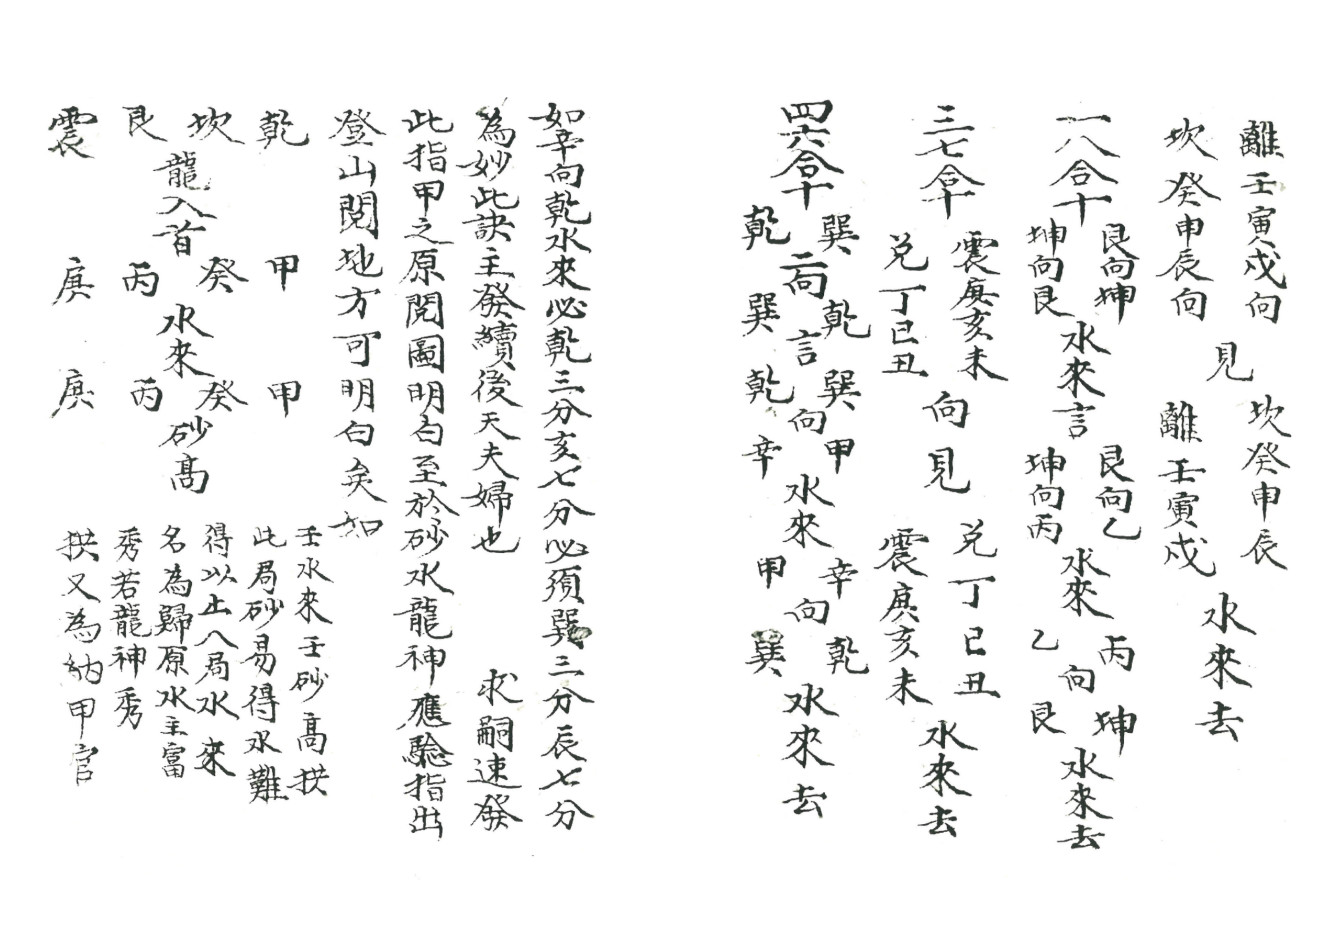 離壬寅戍向
坎癸申辰向
見
坎癸申辰
離壬寅戍
水來去
一八合十
艮向坤
坤向艮
水來言
艮向乙
坤向丙
水來
丙
乙
向
坤
艮
水來去
三七合十
震庚亥未
兑丁巳丑
向見
兑丁巳丑
震庚亥未
水來去
四六合十
巽
乾
二向
乾
巽
言
巽
乾
向
甲
辛
水來
辛
甲
向
乾
巽
水來去
如辛向乾水來必乾三分亥七分必須巽三分辰七分
為妙此訣主發續後天夫婦也 求嗣速發
此指甲之原閱圖明白至於砂水龍神應驗指出
登山閱地方可明白矣如
乾
坎
艮
震
龍入首
甲
癸
丙
庚
水來
甲
癸
丙
庚
砂高
壬水來壬砂高拱
此局砂易得水難
得以上八局水來
名為歸原水主富
秀若龍神秀
拱又為納甲官